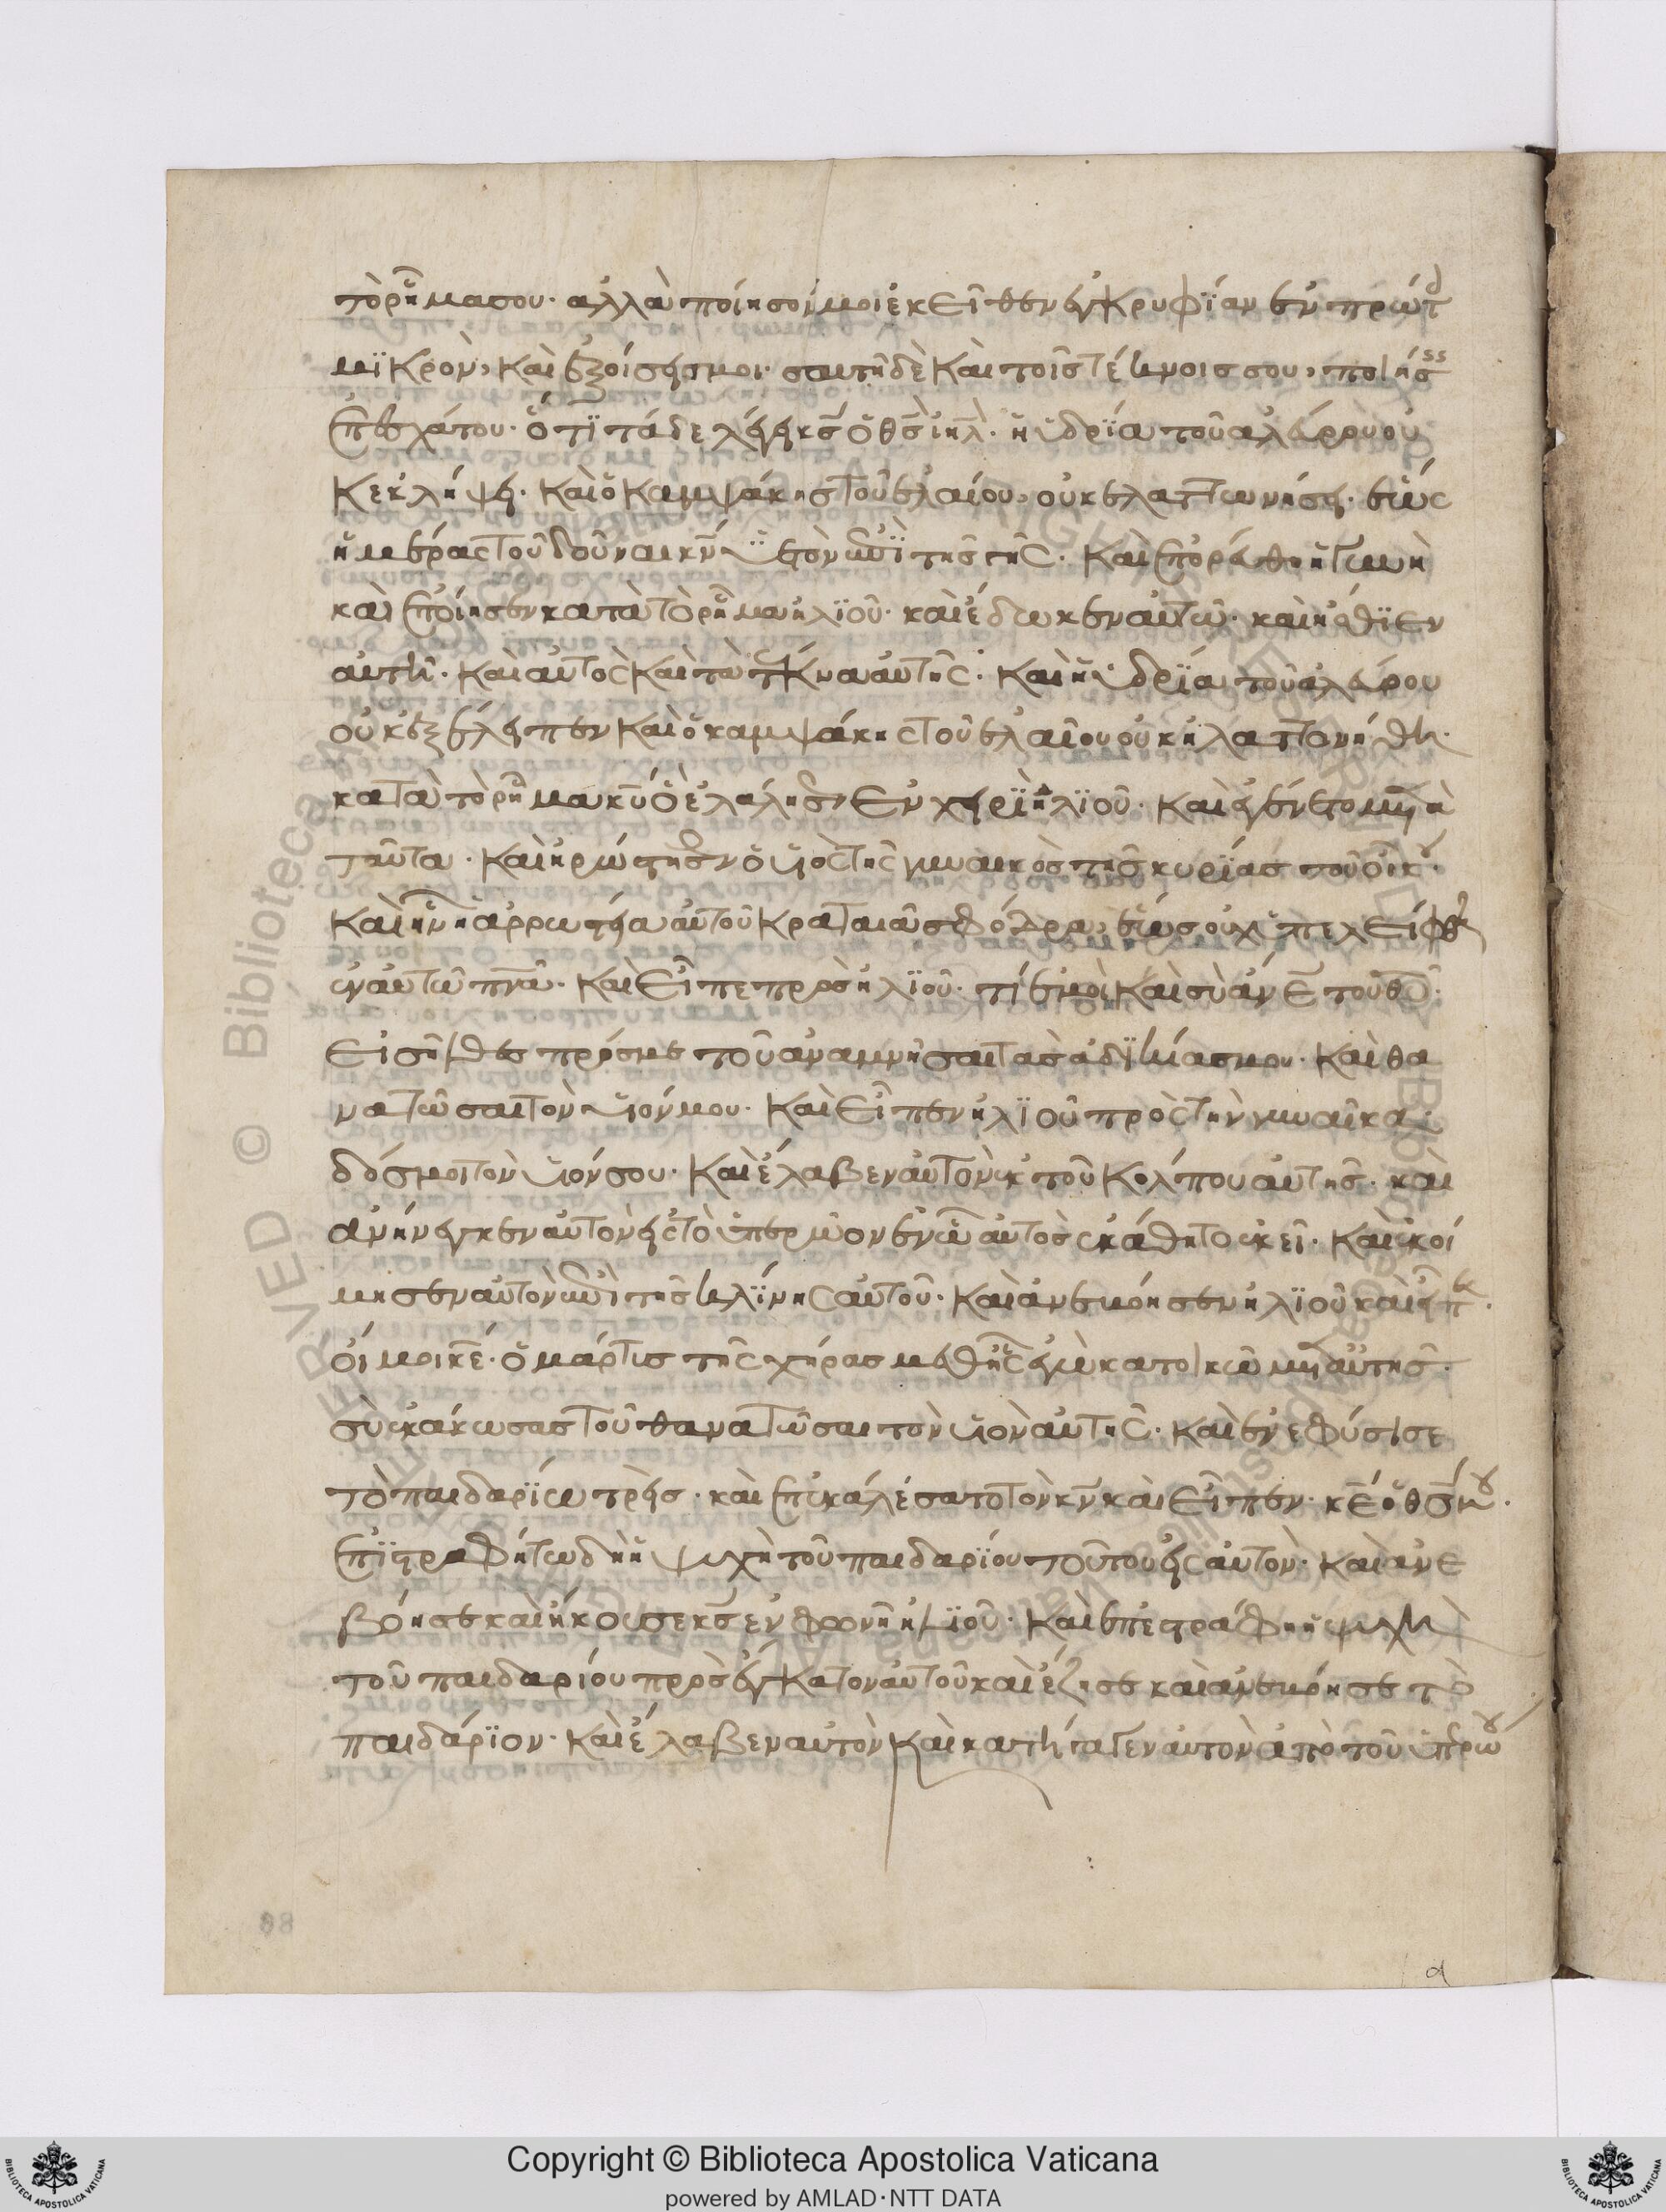 τὸ ρῆμα σου· ἀλλὰ ποίησόν μοι ἐκεῖθεν ἐγκρυφίαν ἐν πρώτ
μϊκρὸν, καὶ ἐξοίσεις μοι· σαυτῆ δὲ καὶ τοῖς τέκνοις σου, ποιήσ
ἐπ ἐσχάτου· ὅτϊ τάδε λέγει κς ὁ θς ιηλ· ἡ ὑδρΐα τοῦ ἀλεύρου οὐ
κ ἐκλήψει· καὶ ὁ καμψάκης τοῦ ἐλαίου, οὐκ ἐλαττωνήσει· ἕως
ἡμέρας τοῦ δοῦναι κν ὑετὸν ἐπὶ τῆς γῆς· καὶ ἐπορεύθη ἡ γυνὴ
καὶ ἐποίησεν κατὰ τὸ ρῆμα ἠλϊοῦ· καὶ ἔδωκεν αὐτῶ· καὶ ἤσθϊεν
αὐτὴ· καὶ αὐτὸς καὶ τὰ τέκνα αὐτῆς· καὶ ἡ ὑδρΐα τοῦ ἀλεύρου
οὐκ ἐξέλειπεν καὶ ὁ καμψάκης τοῦ ἐλαίου οὐκ ἠλαττονήθη·
κατὰ τὸ ρῆμα κυ ὃ ἐλάλησεν ἐν χειρῒ ἠλϊοῦ· καὶ ἐγένετο μετὰ
ταῦτα· καὶ ἠρρώστησεν ὁ υἱὸς τῆς γυναικὸς τῆς κυρΐας τοῦ οἴκου·
καὶ ἦν ἡ ἀρρωστία αὐτοῦ κραταιὰ σφόδρα, ἕως οὐχ ὑπελείφθη
ἐν αὐτῶ πνα· καὶ εἶπε πρὸς ἠλϊοῦ· τί ἐμοὶ καὶ σὺ ἄνε τοῦ θυ·
εἰσῆλθες πρός με τοῦ ἀναμνῆσαι τὰς ἀδϊκίας μου· καὶ θα
νατῶσαι τὸν υἱόν μου· καὶ εἶπεν ἠλϊοῦ πρὸς τὴν γυναῖκα·
δός μοι τὸν υἱόν σου· καὶ ἔλαβεν αὐτὸν ἐκ τοῦ κόλπου αὐτῆς· καὶ
ἀνήνεγκεν αὐτὸν εἰς τὸ ὑπερῶον ἐν ὧ αὐτὸς ἐκάθητο ἐκεῖ· καὶ ἐκοί
μησεν αὐτὸν ἐπὶ τῆς κλΐνης αὐτοῦ· καὶ ἀνεβόησεν ἠλϊοῦ καὶ εἶπε·
οἴ μοι κε· ὁ μάρτυς τῆς χήρας μεθ ἧς ἐγὼ κατοικῶ μετ αὐτῆς·
σὺ ἐκάκωσας τοῦ θανατῶσαι τὸν υἱὸν αὐτῆς· καὶ ἐνεφύσισε
τὸ παιδαρΐω τρὶς· καὶ ἐπεκαλέσατο τὸν κν καὶ εἶπεν· κε ὁ θς μου·
ἐπϊστραφήτω δὴ ἡ ψυχὴ τοῦ παιδαρΐου τούτου εἰς αὐτὸν· καὶ ἀνε
βόησε καὶ ἤκουσε κς ἐν φωνῆ ἠλϊοῦ· καὶ ἐπεστράφη ἡ ψυχὴ
τοῦ παιδαρίου πρὸς ἔγκατον αὐτοῦ καὶ ἔζησε καὶ ἀνεβόησε τὸ
παιδάρϊον· καὶ ἔλαβεν αὐτὸν καὶ κατήγαγεν αὐτὸν ἀπὸ τοῦ ὑπερώου
88
Copyright © Biblioteca Apostolica Vaticana
powered by AMLAD·NTT DATA